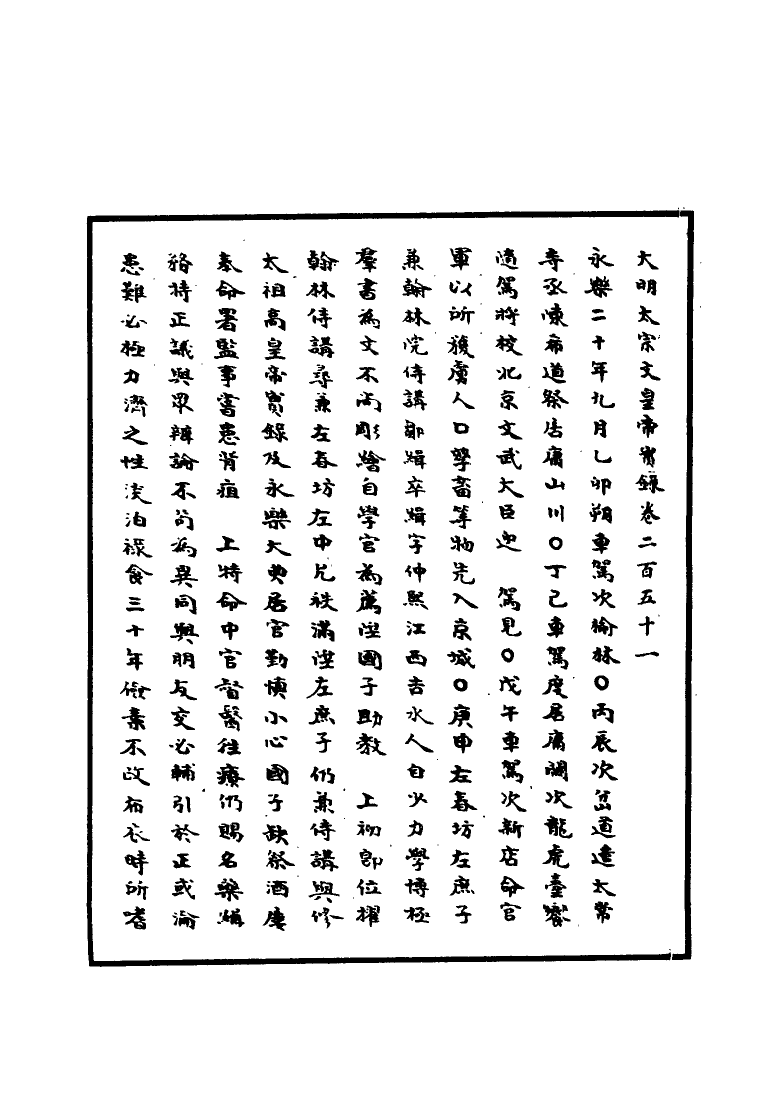 大明太宗文皇帝實錄卷二百五十一
永樂二十年九月乙卯朔車駕次榆林○丙辰次岔道遣太常
寺丞陳希道祭居庸山川○丁巳車駕度居庸關次龍虎臺饗
隨駕將校北京文武大臣迎　駕見○戊午車駕次新店命官
軍以所獲虜人口孳畜等物先入京城○庚申左春坊左庶子
兼翰林院侍講鄒緝卒緝字仲熙江西吉水人自少力學博極
羣書為文不尚彫繪自學官為薦陞國子助教　上初即位擢
翰林侍講尋兼左春坊左中允秩滿陞左庶子仍兼侍講與修
太祖高皇帝實錄及永樂大典居官勤慎小心國子缺祭酒屢
奉命署監事嘗患背疽　上特命中官督醫往療仍賜名藥緝
務持正議與眾辯論不苟為異同與朋友交必輔引於正或淪
患難必極力濟之性淡泊祿食三十年儉素不改布衣時所嗜